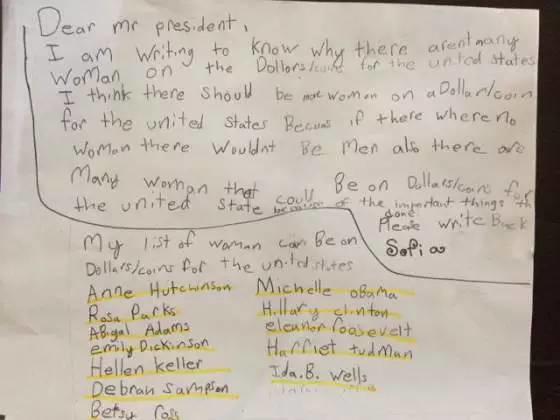 Dear mr president,
I am writing to know why there arent many
woman on the Dollors/coins for the united states
I think there should be more woman on a Dollar/coin
for the united states Becuas if there where no
woman there wouldnt Be Men also there are
Many woman that could Be on Dollars/coins for
the united state because of the important things th
done.
Please write Back
Sofia
My list of woman can Be on
Dollars/coins for the united states
Anne Hutchinson
Rosa Parks
Abigal Adams
emily Dickinson
Hellen keller
Debrah sampson
Betsy ross
Michelle obama
Hillary clinton
eleanor roosevelt
Harriet tudman
Ida.B. wells